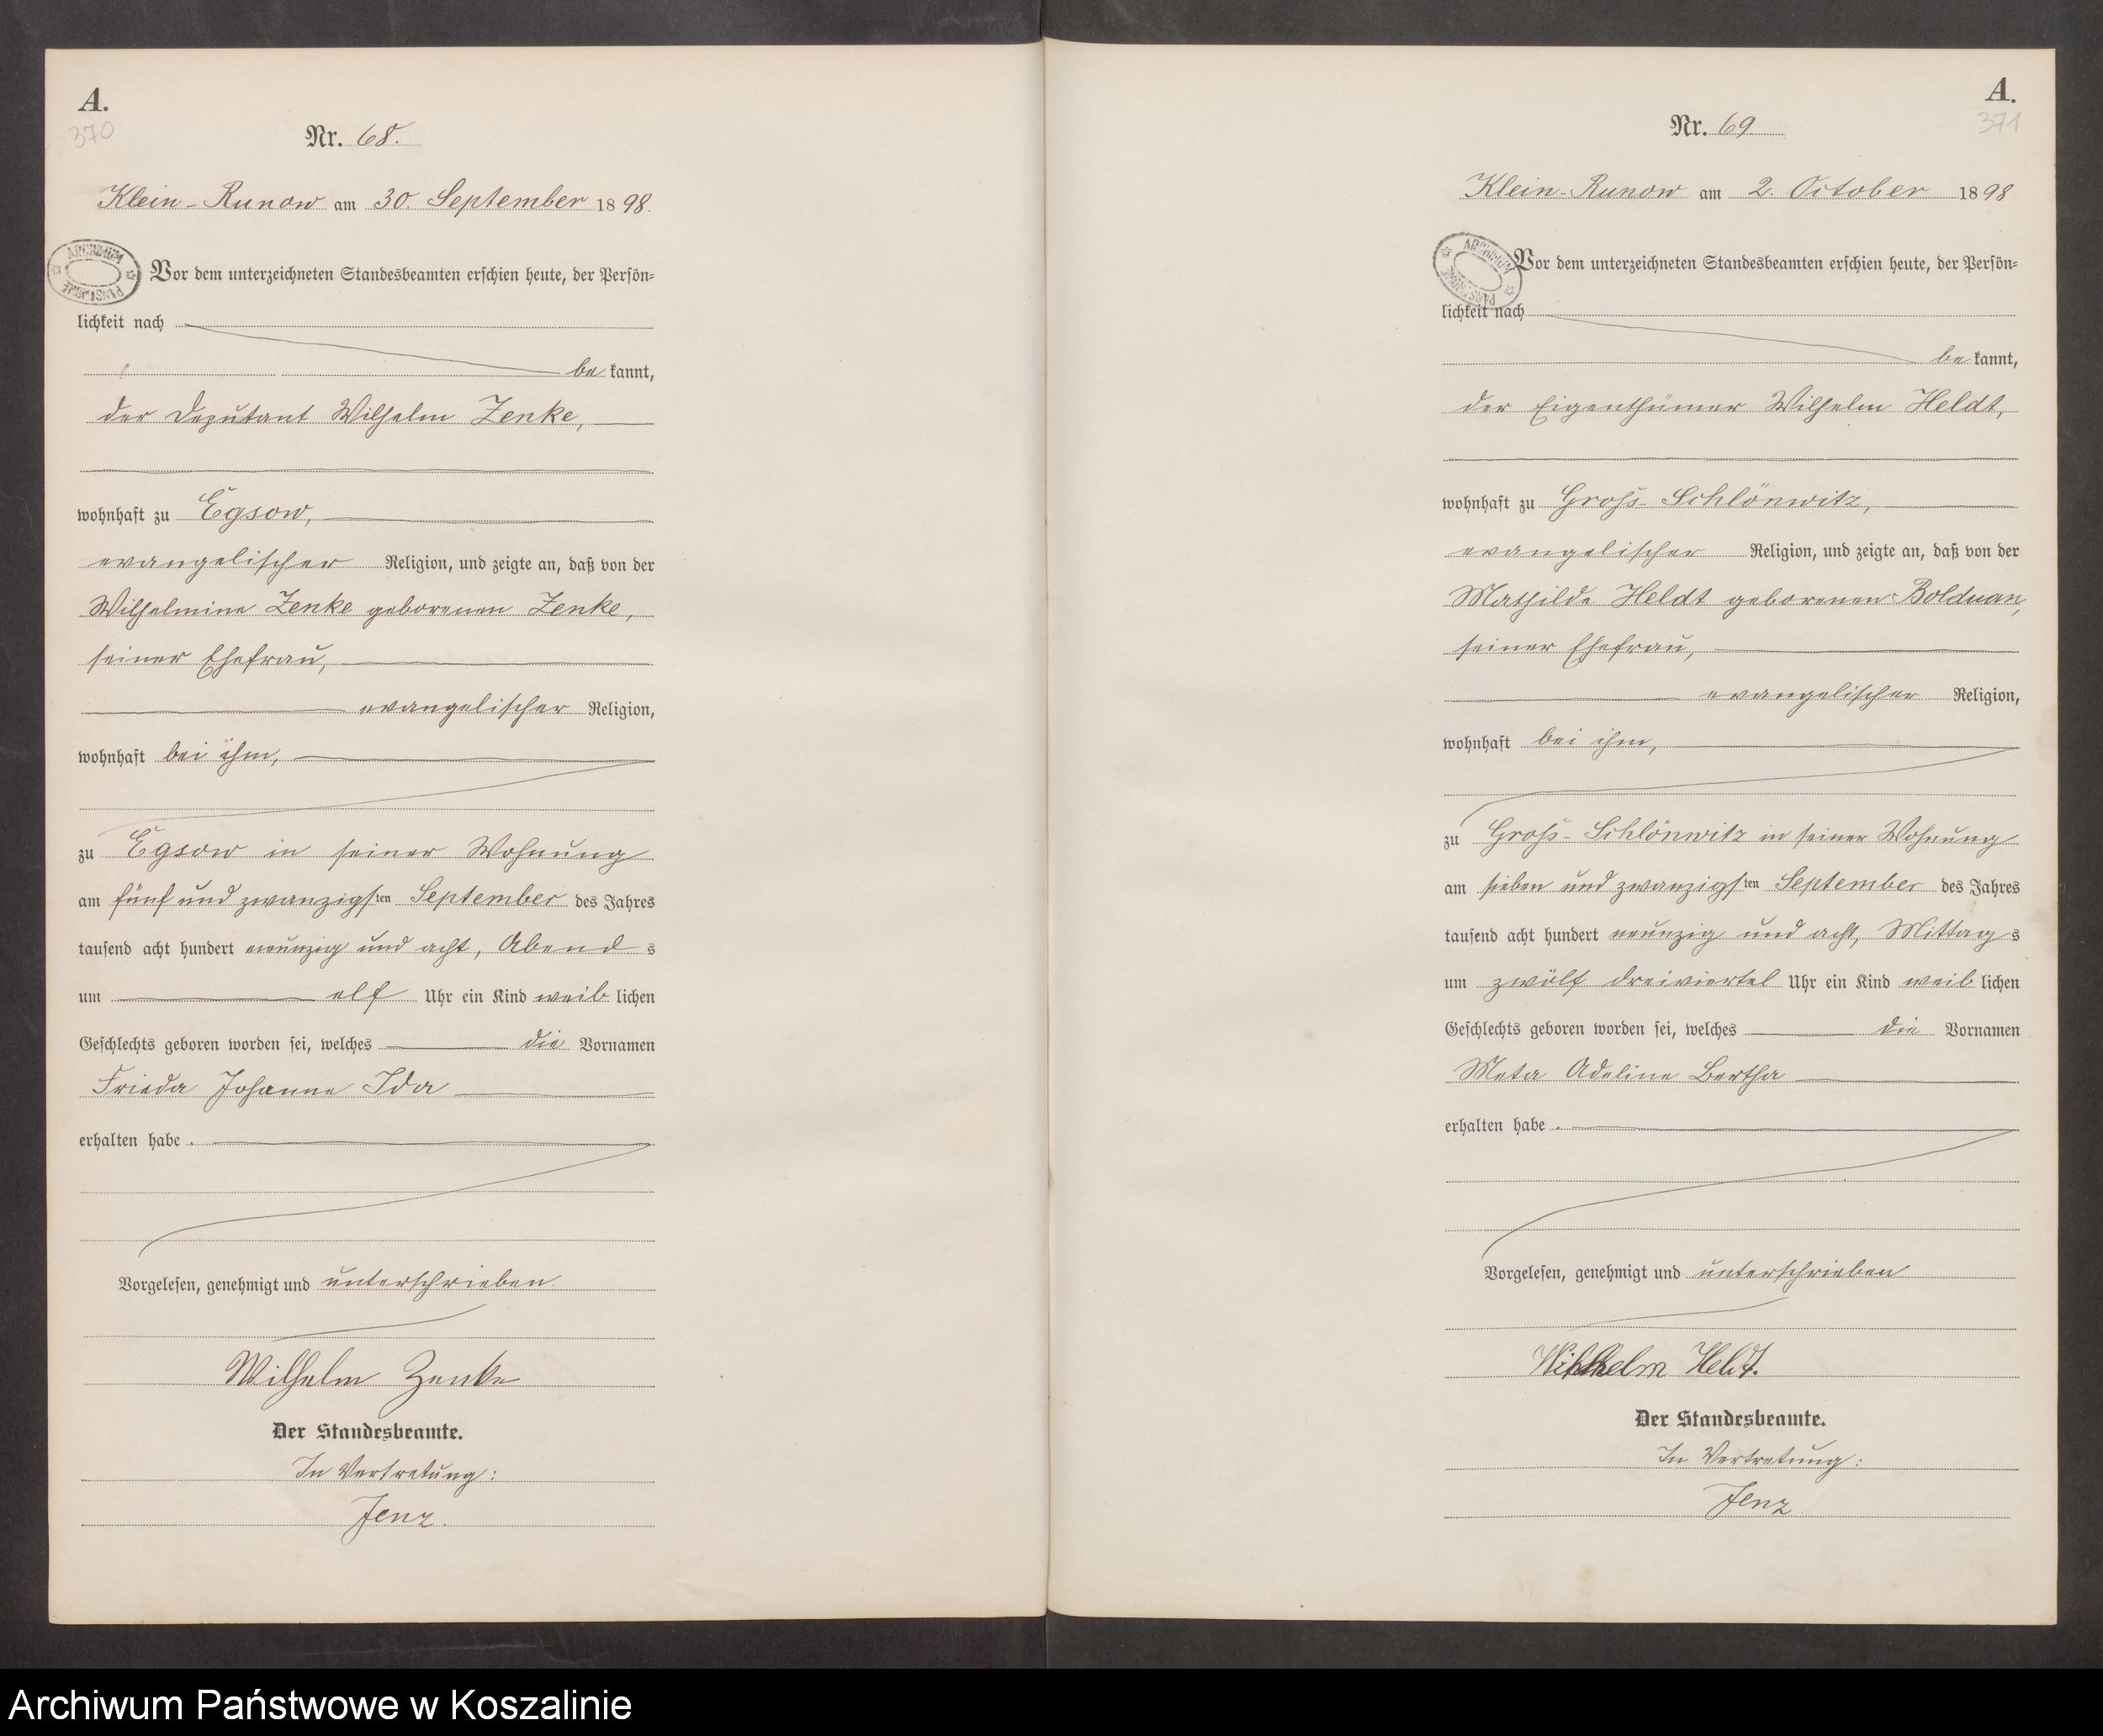 A.
370
Nr. 68.
Klein-Runow am 30. September 1898.
ARCHIWUM
PAŃSTWOWE
Vor dem unterzeichneten Standesbeamten erschien heute, der Persön=
lichkeit nach
be kannt,
der Deputant Wilhelm Zenke,
wohnhaft zu Egsow,
evangelischer Religion, und zeigte an, daß von der
Wilhelmine Zenke geborenen Zenke,
seiner Ehefrau,
evangelischer Religion,
wohnhaft bei ihm,
zu Egsow in seiner Wohnung
am fünf und zwanzigsten September des Jahres
tausend acht hundert neunzig und acht, Abend s
um elf Uhr ein Kind weib lichen
Geschlechts geboren worden sei, welches die Vornamen
Frieda Johanne Ida
erhalten habe.
Vorgelesen, genehmigt und unterschrieben.
Wilhelm Zenke
Der Standesbeamte.
In Vertretung:
Jenz.
A.
371
Nr. 69
Klein-Runow am 2. October 1898
ARCHIWUM
PAŃSTWOWE
Vor dem unterzeichneten Standesbeamten erschien heute, der Persön=
lichkeit nach
be kannt,
der Eigenthümer Wilhelm Heldt,
wohnhaft zu Groß-Schlönwitz,
evangelischer Religion, und zeigte an, daß von der
Mathilde Heldt geborenen Bolduan,
seiner Ehefrau,
evangelischer Religion,
wohnhaft bei ihm,
zu Groß-Schlönwitz in seiner Wohnung
am sieben und zwanzigsten September des Jahres
tausend acht hundert neunzig und acht, Mittag s
um zwölf dreiviertel Uhr ein Kind weib lichen
Geschlechts geboren worden sei, welches die Vornamen
Meta Adeline Bertha
erhalten habe.
Vorgelesen, genehmigt und unterschrieben
Wilhelm Heldt.
Der Standesbeamte.
In Vertretung:
Jenz
Archiwum Państwowe w Koszalinie